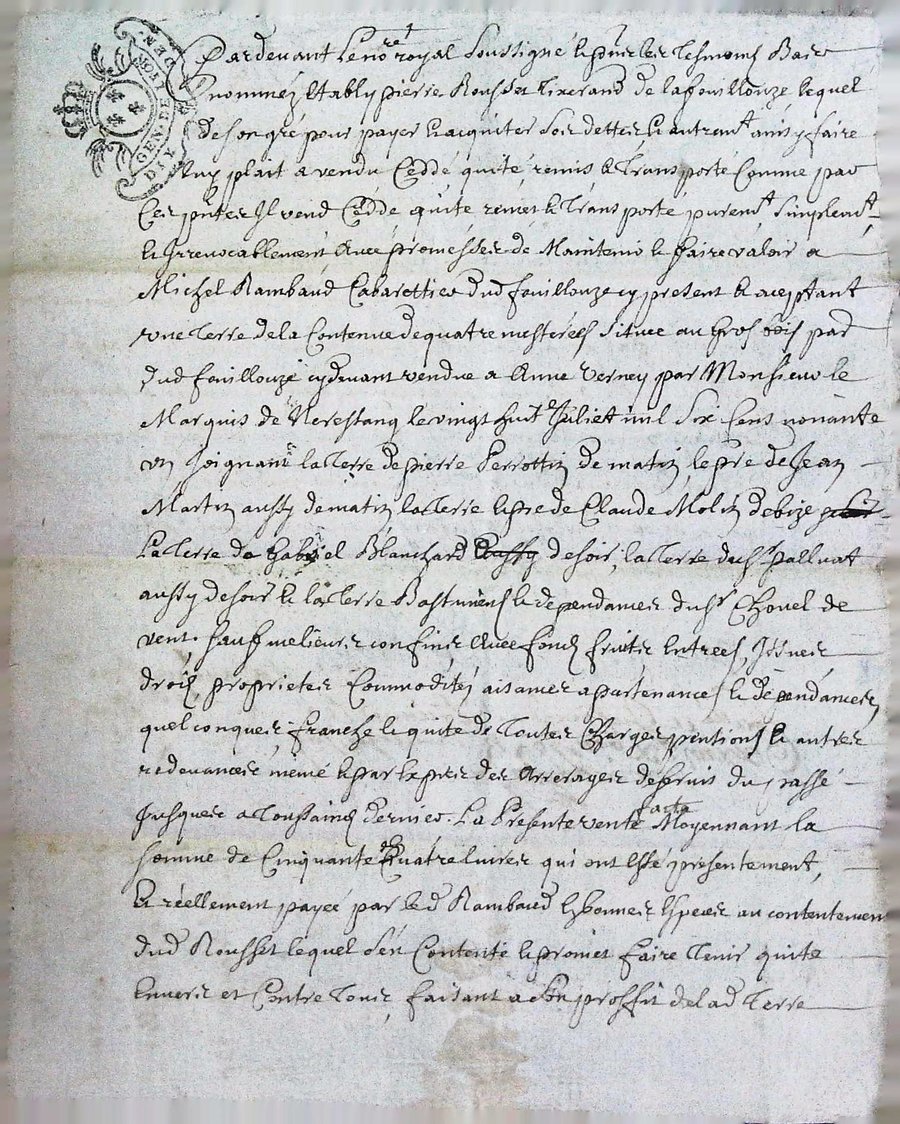 GEN. DE LION
DIX DEN
Pardevant Le no.re royal Soussigné & pnt les Tesmoins Bas
nommés Estably pierre Rousset tixerand de la fouillouze lequel
de son gré pour payer & acquiter ses dettes & autrem.t ainsy faire
luy plait a vendu Ceddé quité, remis & Transporté Comme par
Ces pntes Il vend Cedde quite remet & Transporte purem.t Simplem.t
& Irrevocablement Avec promesses de Maintenir & faire valoir a
Michel Rambaud Cabarettier dud fouillouze cy present & aceptant
une Terre de la Contenue de quatre mesterées Située au Gros bois par
dud fouillouze cydevant vendue a Anne Verney par Monsieur le
Marquis de Nerestang le vingt huit Juliet mil Six Cens nonante
un Joignant la Terre de pierre Perrottin de matin, le pré de Jean
Martin aussy de matin la Terre & pre de Claude Molin de bize
La Terre de Gabriel Blanchard aussy de soir, la Terre du s.r palluat
aussy de soir & la Terre Bastimens & dependances du s.r Chovel de
vent, sauf melieurs confins Avec fonds fruits Entrees, Issues
droits, proprietes Commodités aisances apartenances & dépendances
quelconques franche & quite de Toutes Charges pentions & autres
redevances même & par Exprès des Arrerages de servis du passé
Jusques a Toussaint dernier. La Presente vente faite Moyennant la
somme de Cinquante Quatre livres qui ont Esté presentement,
& réellement payée par led Rambaud En bonnes Especes au contentement
dud Rousset lequel s'en Contente & promet faire Tenir quite
Envers et Contre Tous, faisant a son proffit de lad Terre